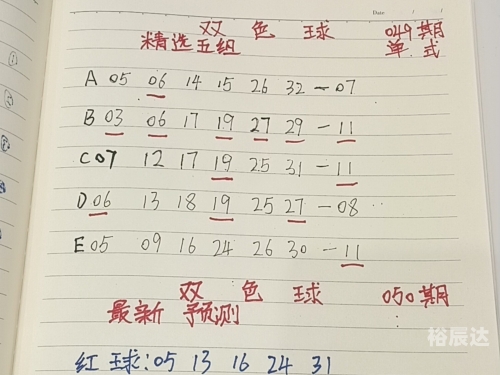 Date
双 色 球 049期
精选五组 单 式
A 05 06 14 15 26 32 — 07
B 03 06 17 19 27 29 — 11
C 07 12 17 19 25 31 — 11
D 06 13 18 19 25 27 — 08
E 05 09 16 24 26 30 — 11
双 色 球 050期
最新 预测
红 球: 05 13 16 24 31
裕辰达